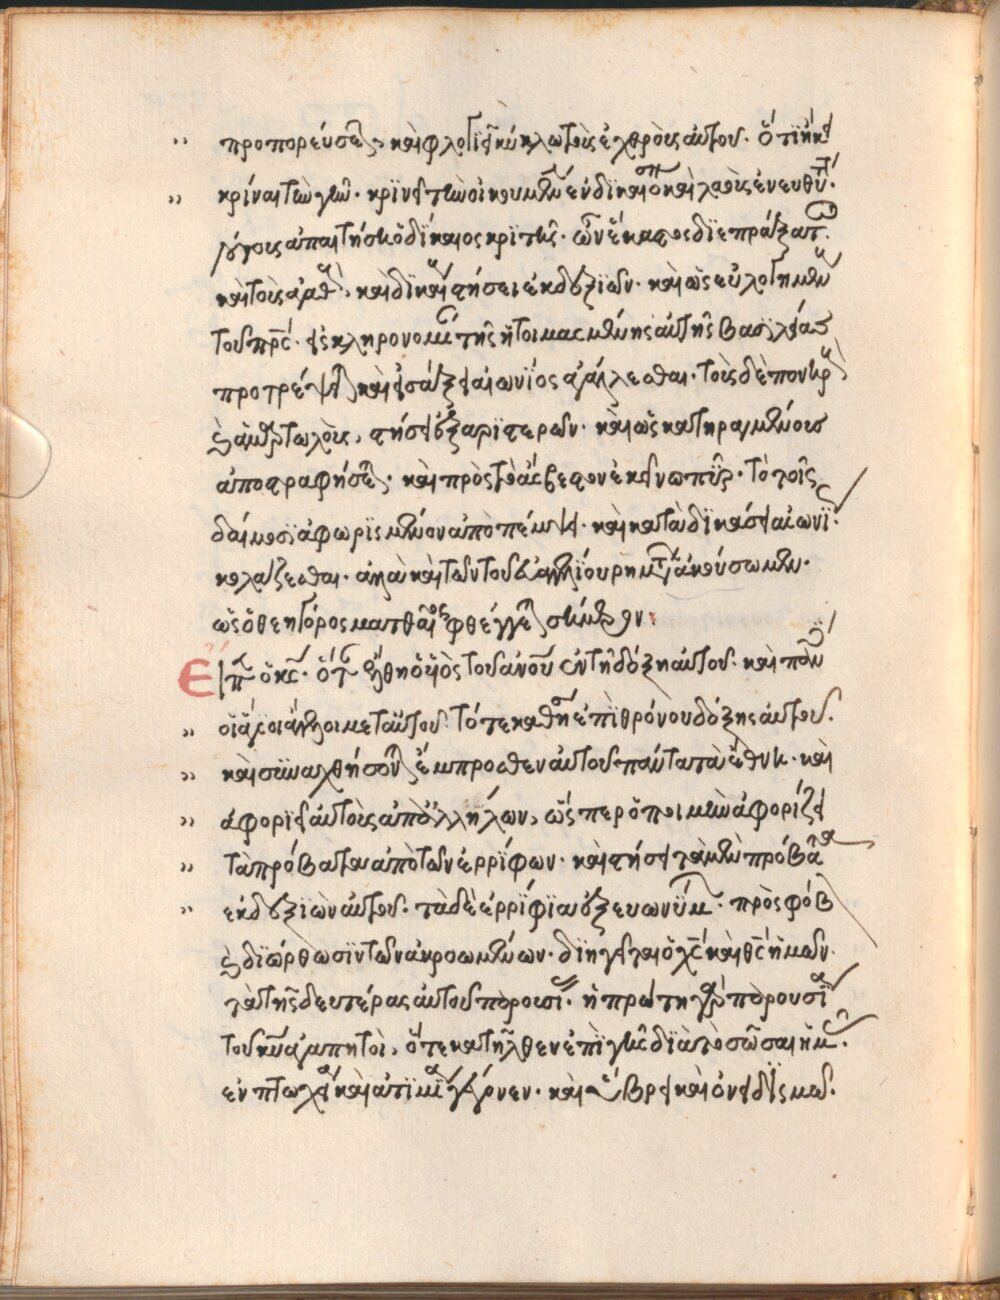 προπορεύσεται, καὶ φλογιεῖ κύκλω τοὺς ἐχθροὺς αὐτοῦ. ὅτι ἥκει
κρίναι τὴν γῆν. κρϊνεῖ τὴν οἰκουμένην ἐν δικαιοσύνη καὶ λαοὺς ἐν εὐθύτητι.
λόγους ἀπαιτήσει ὁ δίκαιος κριτὴς. ὧν ἕκαστος διεπράξατο.
καὶ τοὺς ἀγαθοὺς, καὶ δικαίους στήσει ἐκ δεξϊῶν. καὶ ὡς εὐλογημένους
τοῦ πρς. εἰς κληρονομίαν τῆς ἡτοιμασμένης αὐτοῖς βασιλείας
προτρέψεται καὶ εἰσάξει αἰωνϊως ἀγάλλεσθαι. τοὺς δὲ πονηροὺς
καὶ ἁμαρτωλοὺς, στήσει ἐξ ἀριστερῶν. καὶ ὡς κατηραμένους
ἀποστραφήσεται. καὶ πρὸς τὸ ἄσβεστον ἐκεῖνο πῦρ. τὸ τοῖς
δαίμοσϊν ἀφωρϊσμένον ἀποπέμψει. καὶ καταδικάσει αἰωνίως
κολάζεσθαι. ἀλλὰ καὶ τῶν τοῦ εὐαγγελίου ῥημάτων ἀκούσωμεν.
ὡς ὁ θεηγόρος ματθαῖος φθέγγεται σήμερον:
Εἶπεν ὁ κς. ὅταν ἔλθη ὁ υἱὸς τοῦ ἀνου ἐν τῆ δόξη αὐτοῦ. καὶ πάντες
οἱ ἅγιοι ἄγγελοι μετ' αὐτοῦ. τότε καθίσει ἐπὶ θρόνου δόξης αὐτοῦ.
καὶ συναχθήσονται ἔμπροσθεν αὐτοῦ πάντα τὰ ἔθνη. καὶ
ἀφοριεῖ αὐτοὺς ἀπ' ἀλλήλων, ὥσπερ ὁ ποιμὴν ἀφορίζει
τὰ πρόβατα ἀπὸ τῶν ἐρρίφων. καὶ στήσει τὰ μὲν πρόβατα
ἐκ δεξϊῶν αὐτοῦ. τὰ δὲ ἐρρϊφϊα ἐξ εὐωνύμων. πρὸς φόβον
καὶ διόρθωσϊν τῶν ἀκροωμένων. διηγεῖται ὁ χς καὶ θς ἡμῶν.
τὰ τῆς δευτέρας αὐτοῦ παρουσίας. ἡ πρώτη γὰρ παρουσία
τοῦ κυ ἀγαπητοὶ, ὅτε κατῆλθεν ἐπὶ γῆς διὰ τὸ σῶσαι ἡμᾶς.
ἐν πτωχεία καὶ ἀτιμία γέγονεν. καὶ ὕβρει καὶ ὀνειδισμῶ.